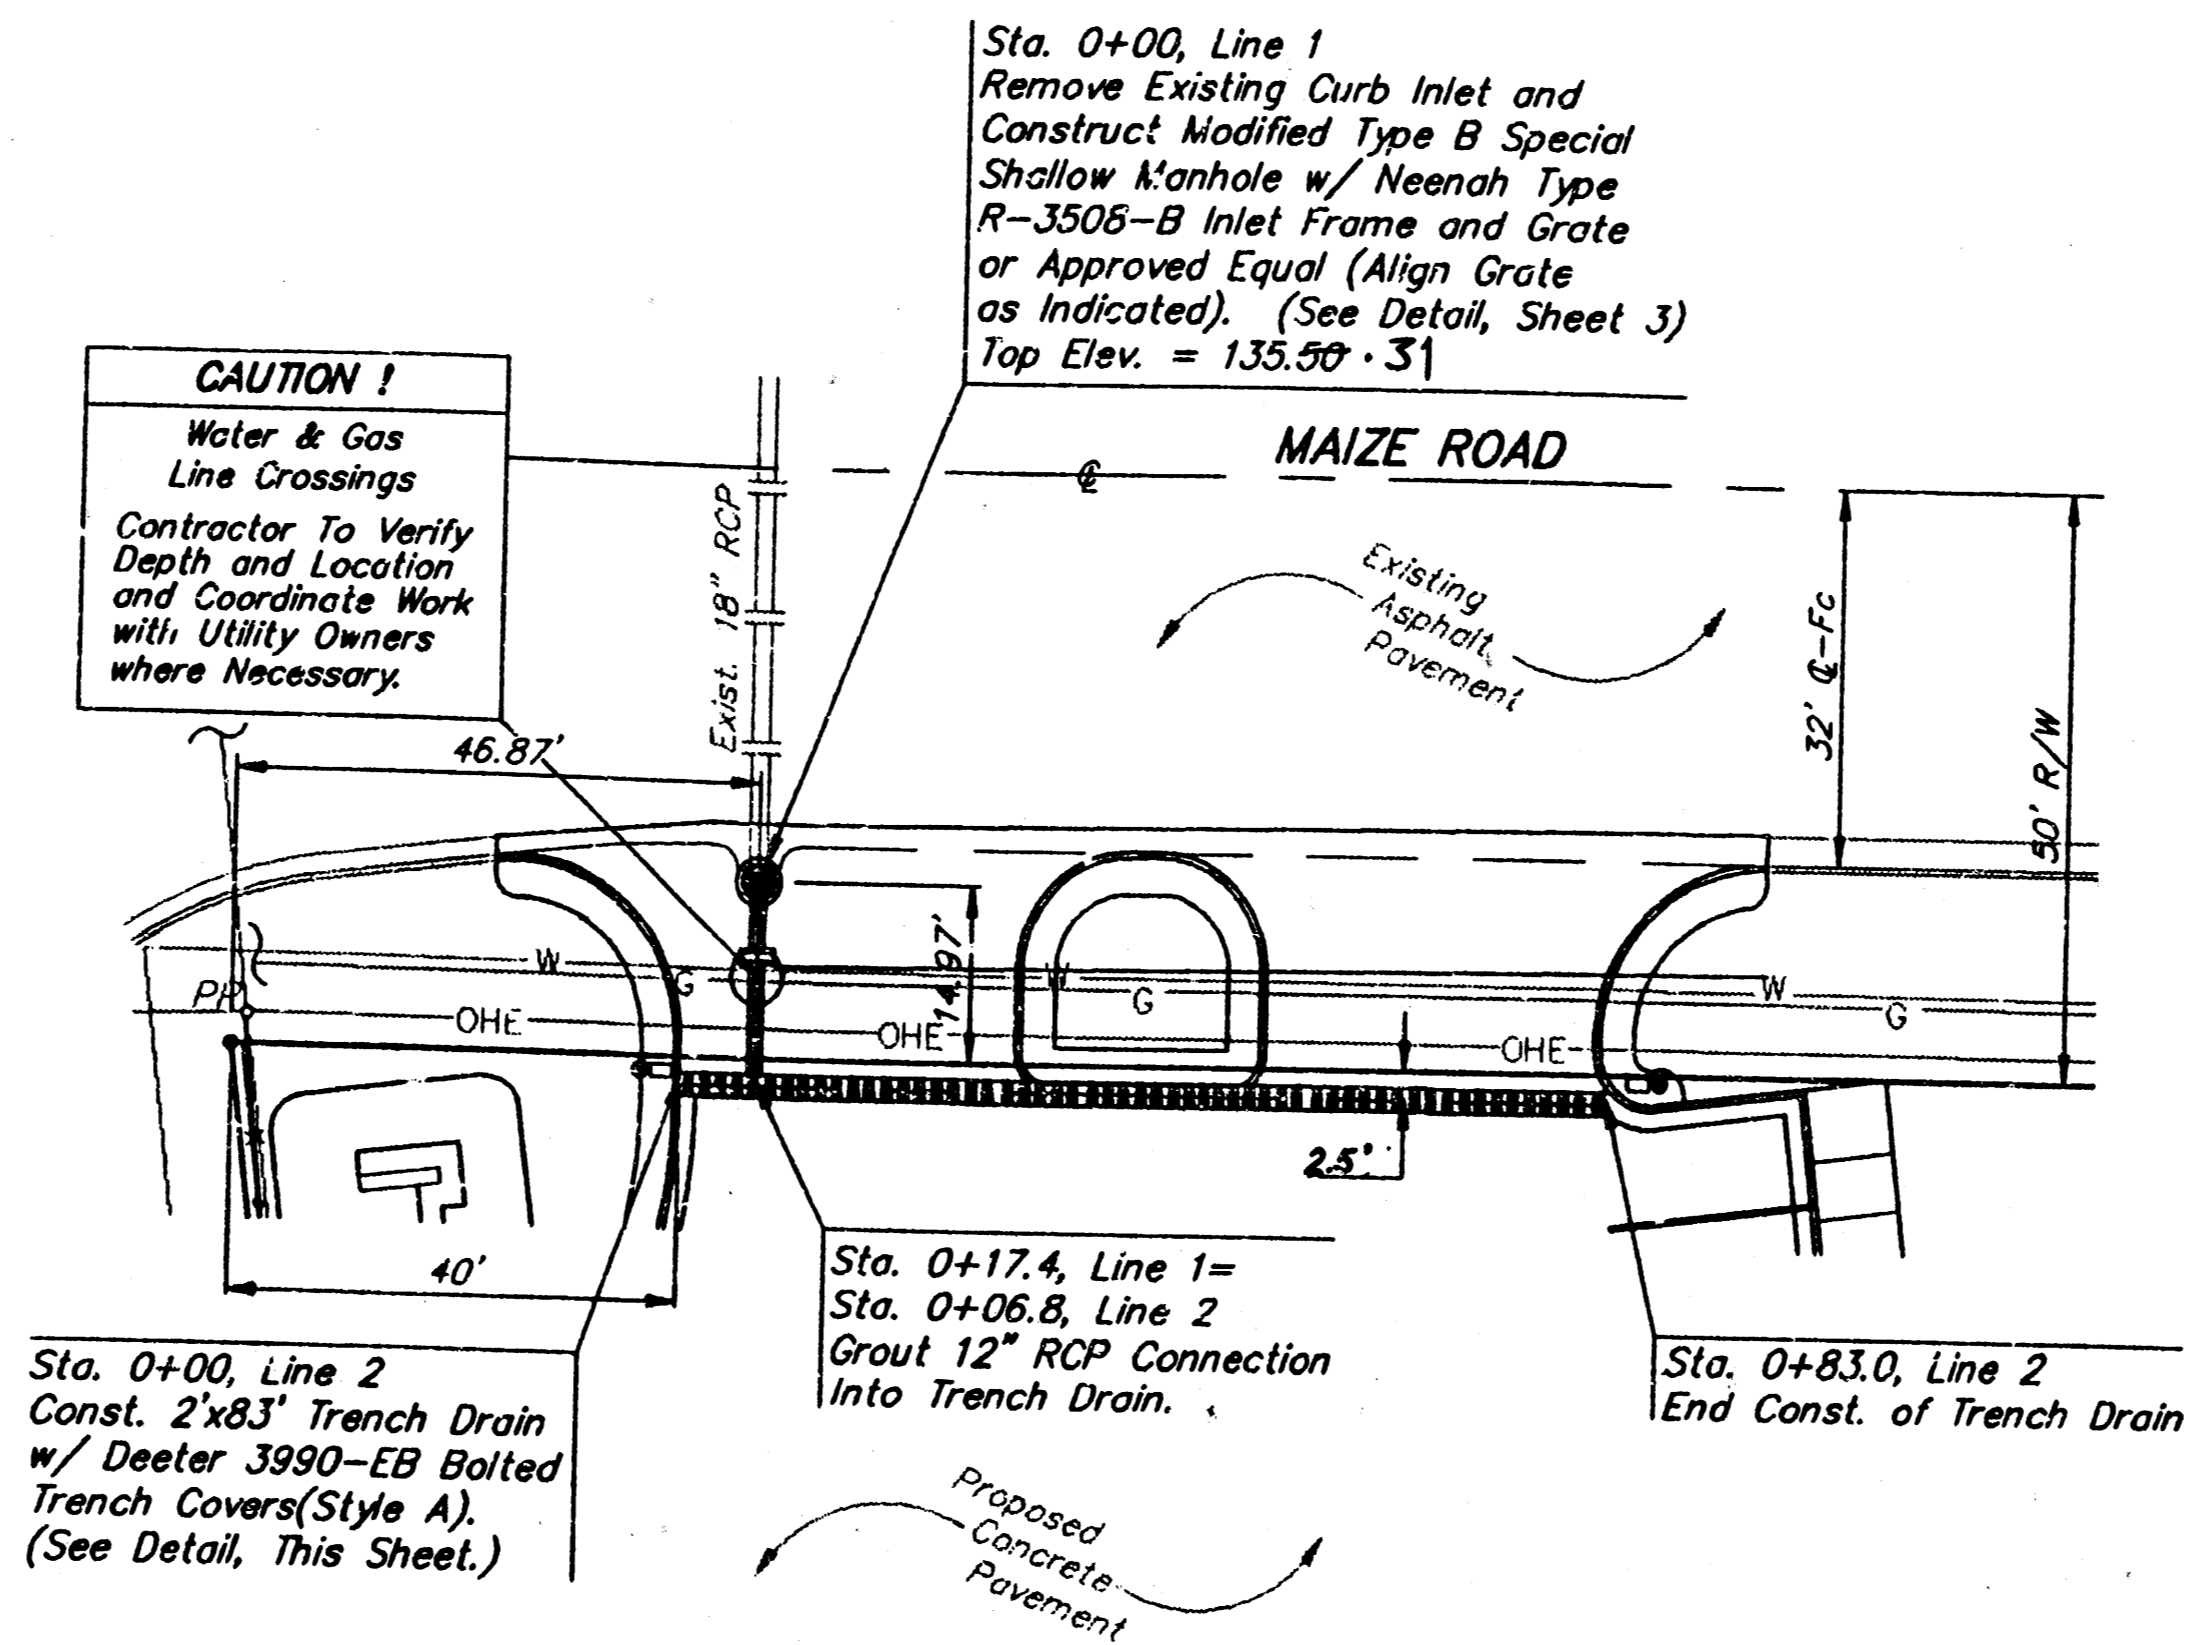 Sta. 0+00, Line 1
Remove Existing Curb Inlet and
Construct Modified Type B Special
Shallow Manhole w/ Neenah Type
R-3508-B Inlet Frame and Grate
or Approved Equal (Align Grate
as Indicated). (See Detail, Sheet 3)
Top Elev. = 135.50 .31
CAUTION !
Water & Gas
Line Crossings
Contractor To Verify
Depth and Location
and Coordinate Work
with Utility Owners
where Necessary.
MAIZE ROAD
℄
Exist. 18" RCP
Existing
Asphalt
Pavement
32' ℄-Fc
50' R/W
46.87'
14.97'
W
G
W
G
W
G
PP
OHE
OHE
OHE
2.5'
40'
Sta. 0+17.4, Line 1=
Sta. 0+06.8, Line 2
Grout 12" RCP Connection
Into Trench Drain.
Sta. 0+00, Line 2
Const. 2'x83' Trench Drain
w/ Deeter 3990-EB Bolted
Trench Covers(Style A).
(See Detail, This Sheet.)
Sta. 0+83.0, Line 2
End Const. of Trench Drain
Proposed
Concrete
Pavement